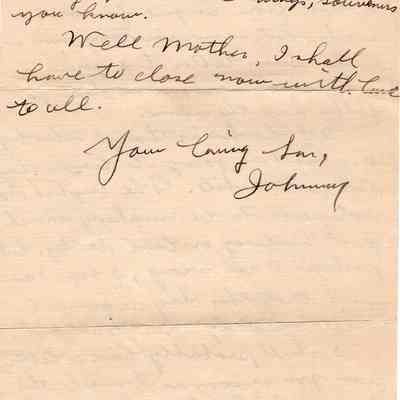 things, souvenirs
you know.
Well Mother, I shall
have to close now with love
to all.
Your loving Son,
Johnny